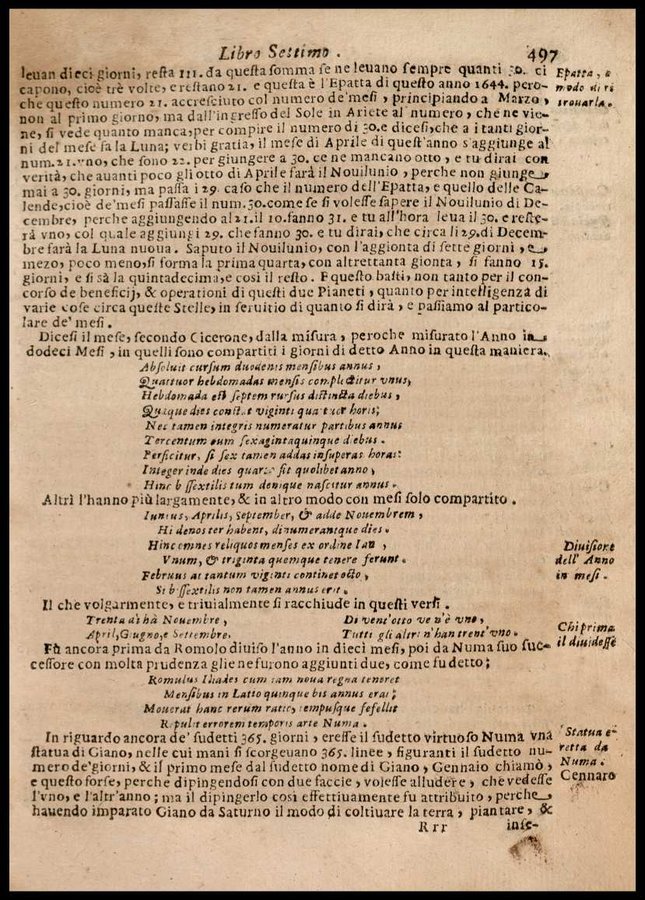 Libro Settimo. 497
leuan dieci giorni, resta III. da questa somma se ne leuano sempre quanti 30. ci
capono, cioè tre volte, e restano 21. e questa è l'Epatta di questo anno 1644. pero-
che questo numero 21. accresciuto col numero de'mesi, principiando a Marzo,
non al primo giorno, ma dall'ingresso del Sole in Ariete al numero, che ne vie-
ne, si vede quanto manca, per compire il numero di 30. e dicesi, che a i tanti gior-
ni del mese fa la Luna; verbi gratia, il mese di Aprile di quest'anno s'aggiunge al
num. 21. vno, che sono 22. per giungere a 30. ce ne mancano otto, e tu dirai con
verità, che auanti poco gli otto di Aprile farà il Nouilunio, perche non giunge
mai a 30. giorni, ma passa i 29. caso che il numero dell'Epatta, e quello delle Ca-
lende, cioè de'mesi passasse il num. 30. come se si volesse sapere il Nouilunio di De-
cembre, perche aggiungendo al 21. il 10. fanno 31. e tu all'hora leua il 30. e reste-
rà vno, col quale aggiungi 29. che fanno 30. e tu dirai, che circa li 29. di Decem-
bre farà la Luna nuoua. Saputo il Nouilunio, con l'aggionta di sette giorni, e
mezo, poco meno, si forma la prima quarta, con altrettanta gionta, si fanno 15.
giorni, e si sà la quintadecima, e così il resto. E questo basti, non tanto per il con-
corso de beneficij, & operationi di questi due Pianeti, quanto per intelligenza di
varie cose circa queste Stelle, in seruitio di quanto si dirà, e passiamo al partico-
lare de' mesi.
Dicesi il mese, secondo Cicerone, dalla misura, peroche misurato l'Anno in
dodeci Mesi, in quelli sono compartiti i giorni di detto Anno in questa maniera.
Absoluit cursum duodenis mensibus annus,
Quattuor hebdomadas mensis complectitur vnus,
Hebdomada est septem rursus distincta diebus,
Quique dies constat viginti quatuor horis;
Nec tamen integris numeratur partibus annus
Tercentum cum sexagintaquinque diebus.
Perficitur, si sex tamen addas insuperas horas:
Integer inde dies quarto fit quolibet anno,
Hinc bissextilis tum denique nascitur annus.
Altri l'hanno più largamente, & in altro modo con mesi solo compartito.
Iunius, Aprilis, September, & adde Nouembrem,
Hi denos ter habent, dinumerantque dies.
Hinc omnes reliquos menses ex ordine Ian,
Vnum, & triginta quemque tenere ferunt.
Februus at tantum viginti continet octo,
Si bissextilis non tamen annus erit.
Il che volgarmente, e triuialmente si racchiude in questi versi.
Trenta dì hà Nouembre, Di vent'otto ve n'è vno,
April, Giugno, e Settembre, Tutti gli altri n'han trent'vno.
Fù ancora prima da Romolo diuiso l'anno in dieci mesi, poi da Numa suo suc-
cessore con molta prudenza glie ne furono aggiunti due, come fu detto;
Romulus Iliades cum iam noua regna teneret
Mensibus in Latio quinque bis annus erat;
Mouerat hanc rerum ratio, tempusque fefellit
Repulit errorem temporis arte Numa.
In riguardo ancora de' sudetti 365. giorni, eresse il sudetto virtuoso Numa vna
statua di Giano, nelle cui mani si scorgeuano 365. linee, figuranti il sudetto nu-
mero de'giorni, & il primo mese dal sudetto nome di Giano, Gennaio chiamò,
e questo forse, perche dipingendosi con due faccie, volesse alludere, che vedesse
l'vno, e l'altr'anno; ma il dipingerlo così effettiuamente fu attribuito, perche
hauendo imparato Giano da Saturno il modo di coltiuare la terra, piantare, &
Rrr inse-
Epatta, e
modo di ri
trouarla.
Diuisione
dell' Anno
in mesi.
Chi prima
il diuidesse
Statua e-
retta da
Numa.
Gennaro